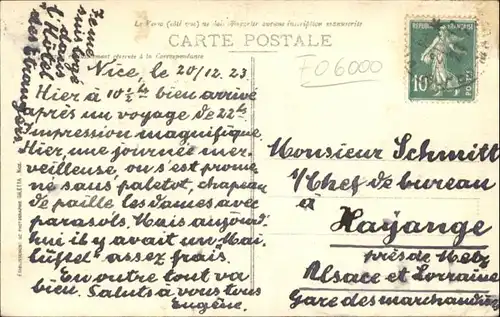 Le Verso (côté vue) ne doit comporter aucune inscription manuscrite
CARTE POSTALE
réservée à la Correspondance
Je me
suis logé
dans
l'Hôtel
des Étrangers.
Nice, le 20/12.23
Hier à 10 1/2 hs bien arrivé
après un voyage de 22 hs
Impression magnifique
Hier, une journée mer-
veilleuse, on s'est prome
né sans paletot, chapeau
de paille les dames avec
parasols Mais aujourd
hui il y avait un Mai
lüftel assez frais.
En outre tout va
bien. Saluts à vous tous
Eugène.
F06000
RÉPUBLIQUE FRANÇAISE
10c
POSTES
Monsieur Schmitt
s/Chef de bureau
à
Hayange
près de Metz
Alsace et Lorraine
Gare des marchandises
ÉTABLISSEMENT DE PHOTOGRAPHIE GILETTA, NICE